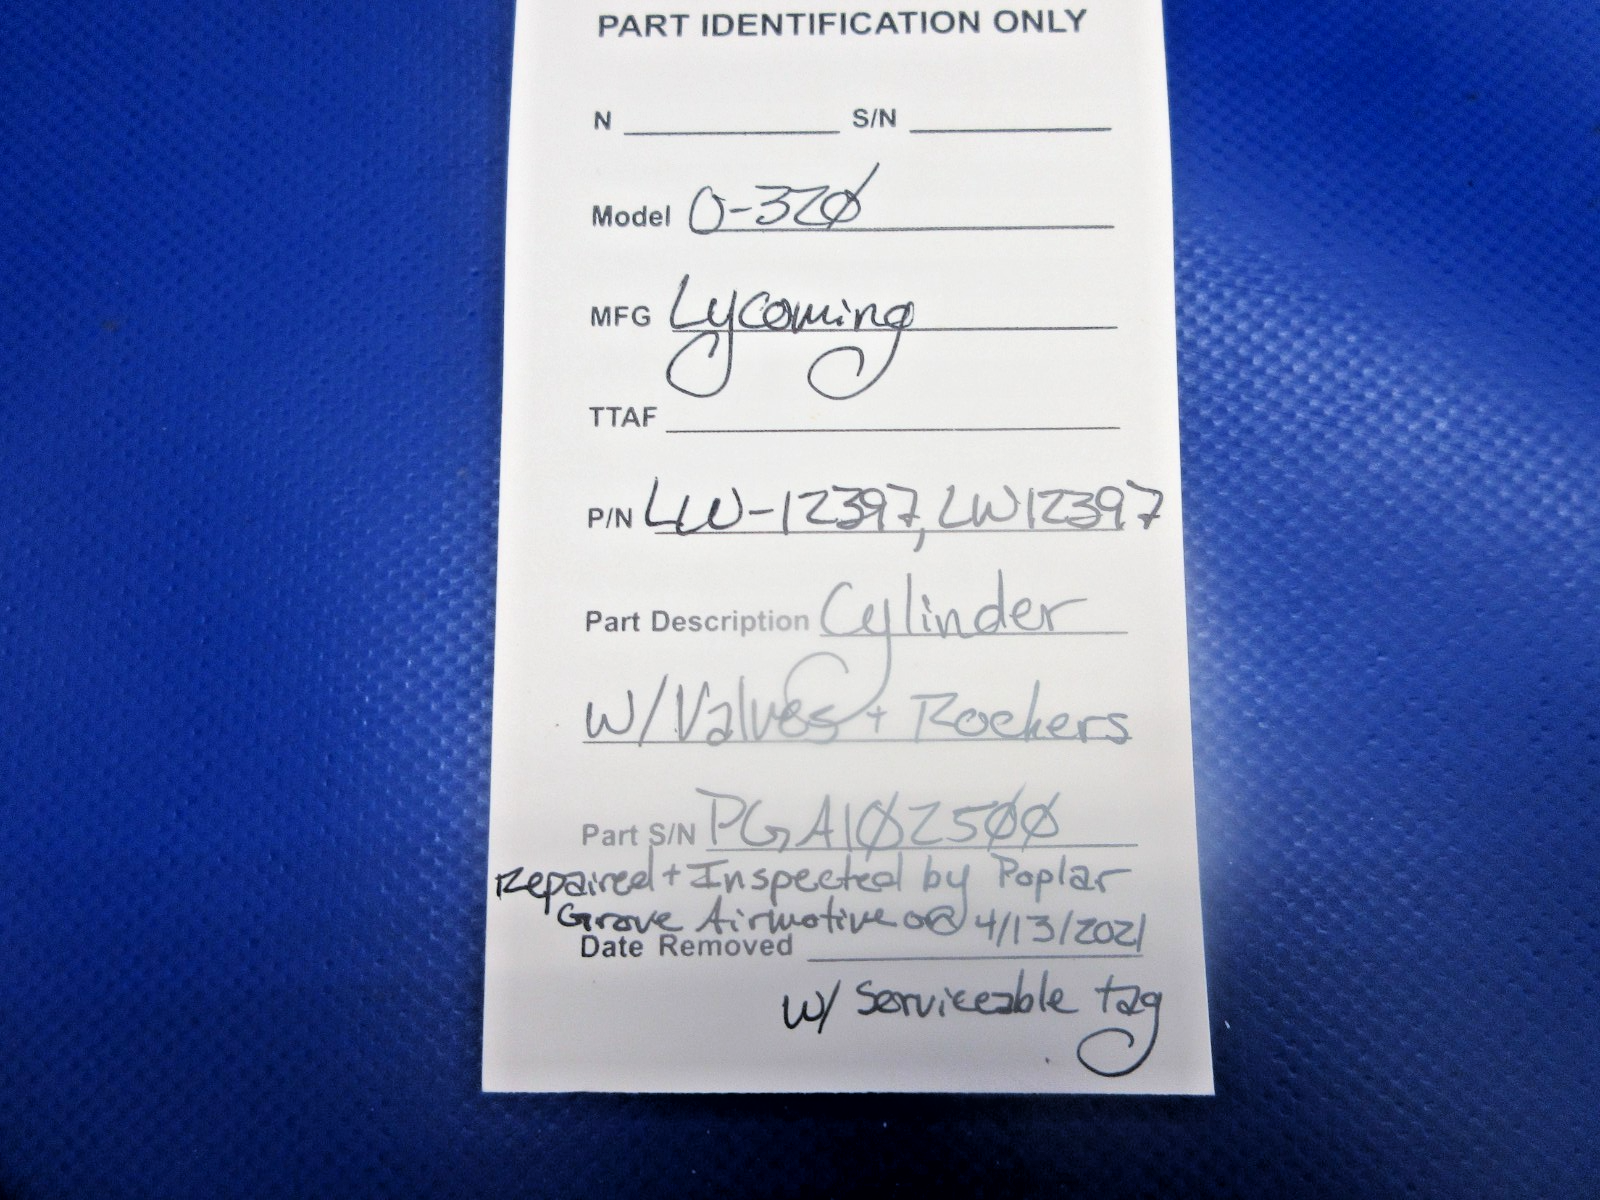 PART IDENTIFICATION ONLY
N S/N
Model O-320
MFG Lycoming
TTAF
P/N LW-12397, LW12397
Part Description Cylinder
W/Valves + Rockers
Part S/N PGA102500
Repaired + Inspected by Poplar
Grove Airmotive on 4/13/2021
Date Removed
W/ Serviceable tag